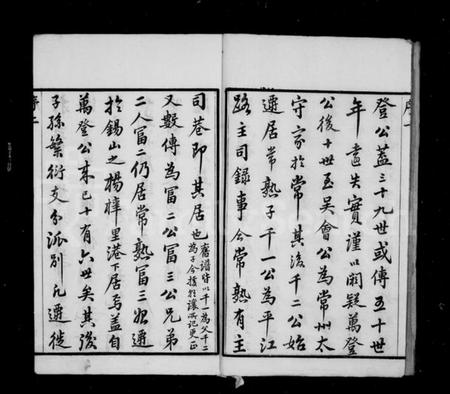 登公蓋三十九世或傳五十世
年遠失實謹以闕疑萬登
公後十世至吳會公為常州太
守家於常其後千二公始
遷居常熟子千一公為平江
路主司錄事今常熟有主
司巷即其居也舊譜皆以千一為父千二為子今據於譲所記更正
又數傳為冨二公冨三公兄弟
二人冨二仍居常熟冨三始遷
於錫山之楊樟里港下居焉蓋自
萬登公來已十有六世矣其後
子孫繁衍支分派別凡遷徙
序二